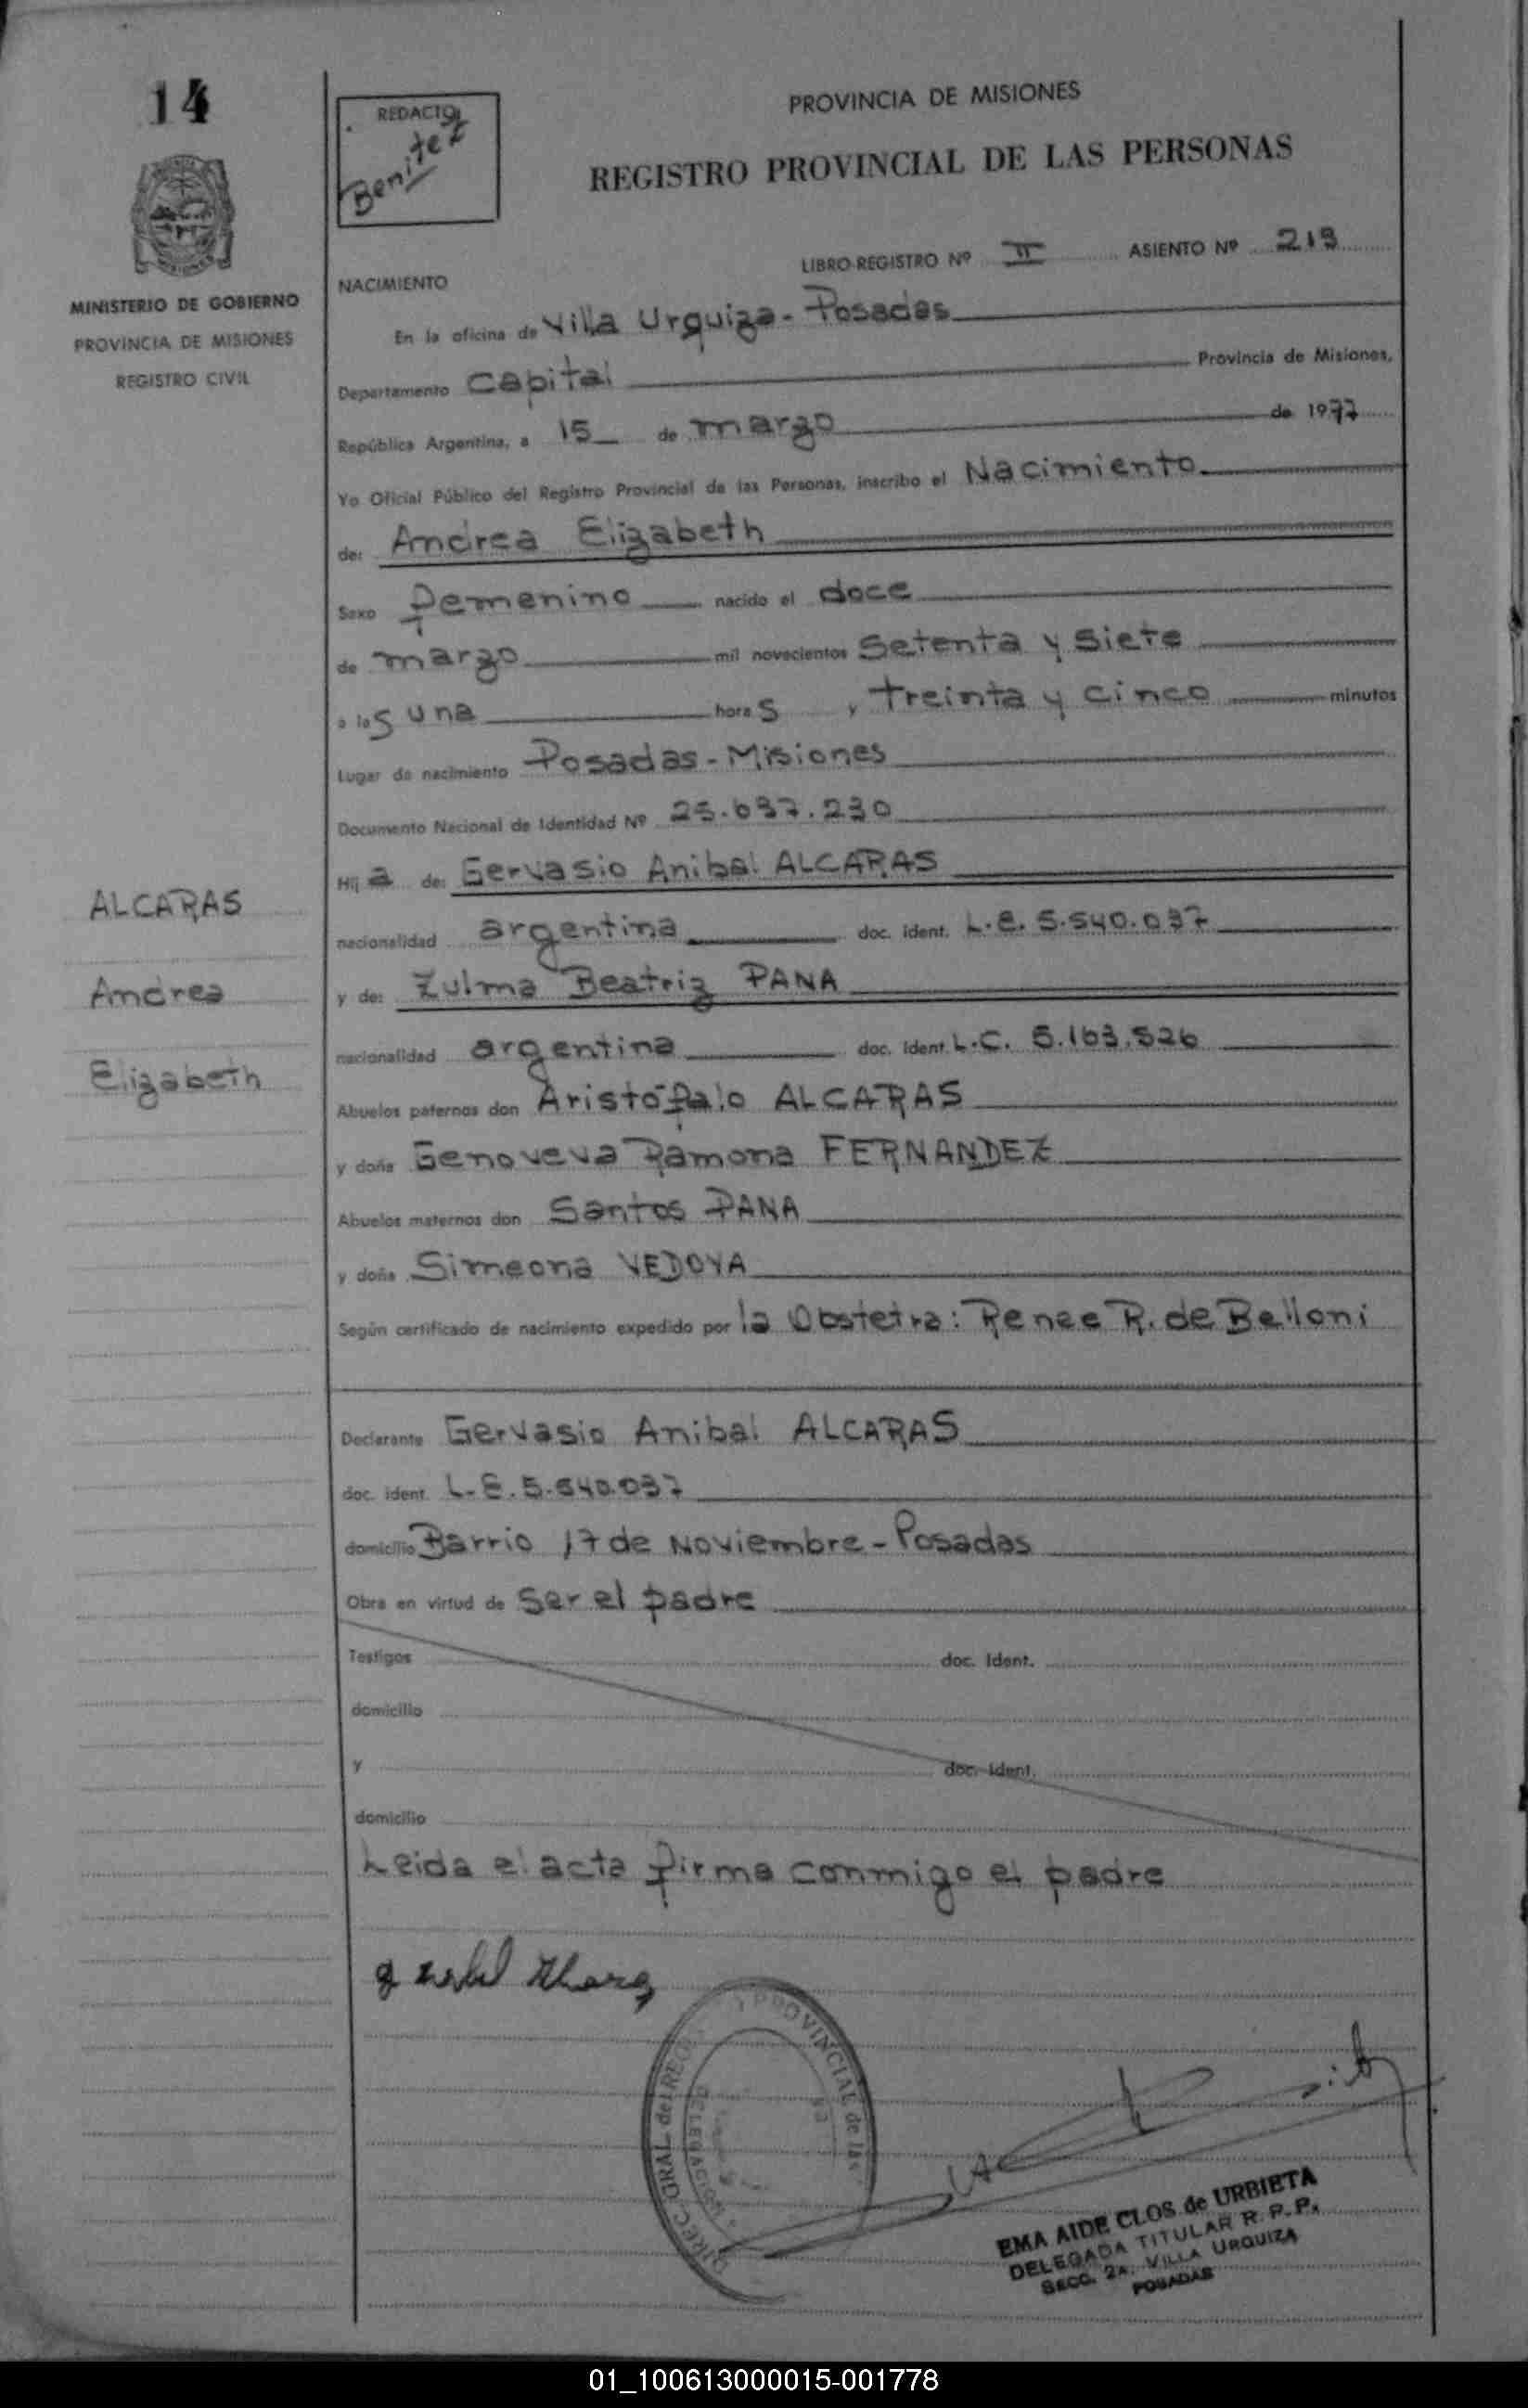 14
REDACTO
Benitez
PROVINCIA DE MISIONES
REGISTRO PROVINCIAL DE LAS PERSONAS
LIBRO-REGISTRO Nº II ASIENTO Nº 219
MINISTERIO DE GOBIERNO
PROVINCIA DE MISIONES
REGISTRO CIVIL
NACIMIENTO
En la oficina de Villa Urquiza - Posadas
Departamento Capital Provincia de Misiones,
República Argentina, a 15 de marzo de 1977
Yo Oficial Público del Registro Provincial de las Personas, inscribo el Nacimiento
de: Andrea Elizabeth
Sexo femenino nacido el doce
de marzo mil novecientos Setenta y Siete
a las una horas y treinta y cinco minutos
Lugar de nacimiento Posadas - Misiones
Documento Nacional de Identidad Nº 25.637.230
Hija de: Gervasio Anibal ALCARAS
nacionalidad argentina doc. ident. L.E. 5.540.037
y de: Zulma Beatriz PANA
nacionalidad argentina doc. ident. L.C. 5.163.526
Abuelos paternos don Aristófalo ALCARAS
y doña Genoveva Ramona FERNANDEZ
Abuelos maternos don Santos PANA
y doña Simeona VEDOYA
Según certificado de nacimiento expedido por la Obstetra: Renee R. de Belloni
ALCARAS
Andrea
Elizabeth
Declarante Gervasio Anibal ALCARAS
doc. ident. L.E. 5.540.037
domicilio Barrio 17 de Noviembre - Posadas
Obra en virtud de Ser el padre
Testigos doc. ident.
domicilio
y doc. ident.
domicilio
Leida el acta firma conmigo el padre
DIREC. GRAL. del REG. PROVINCIAL de las
DELEGACION
EMA AIDE CLOS de URBIETA
DELEGADA TITULAR R. P. P.
SECC. 2a. VILLA URQUIZA
POSADAS
01_100613000015-001778